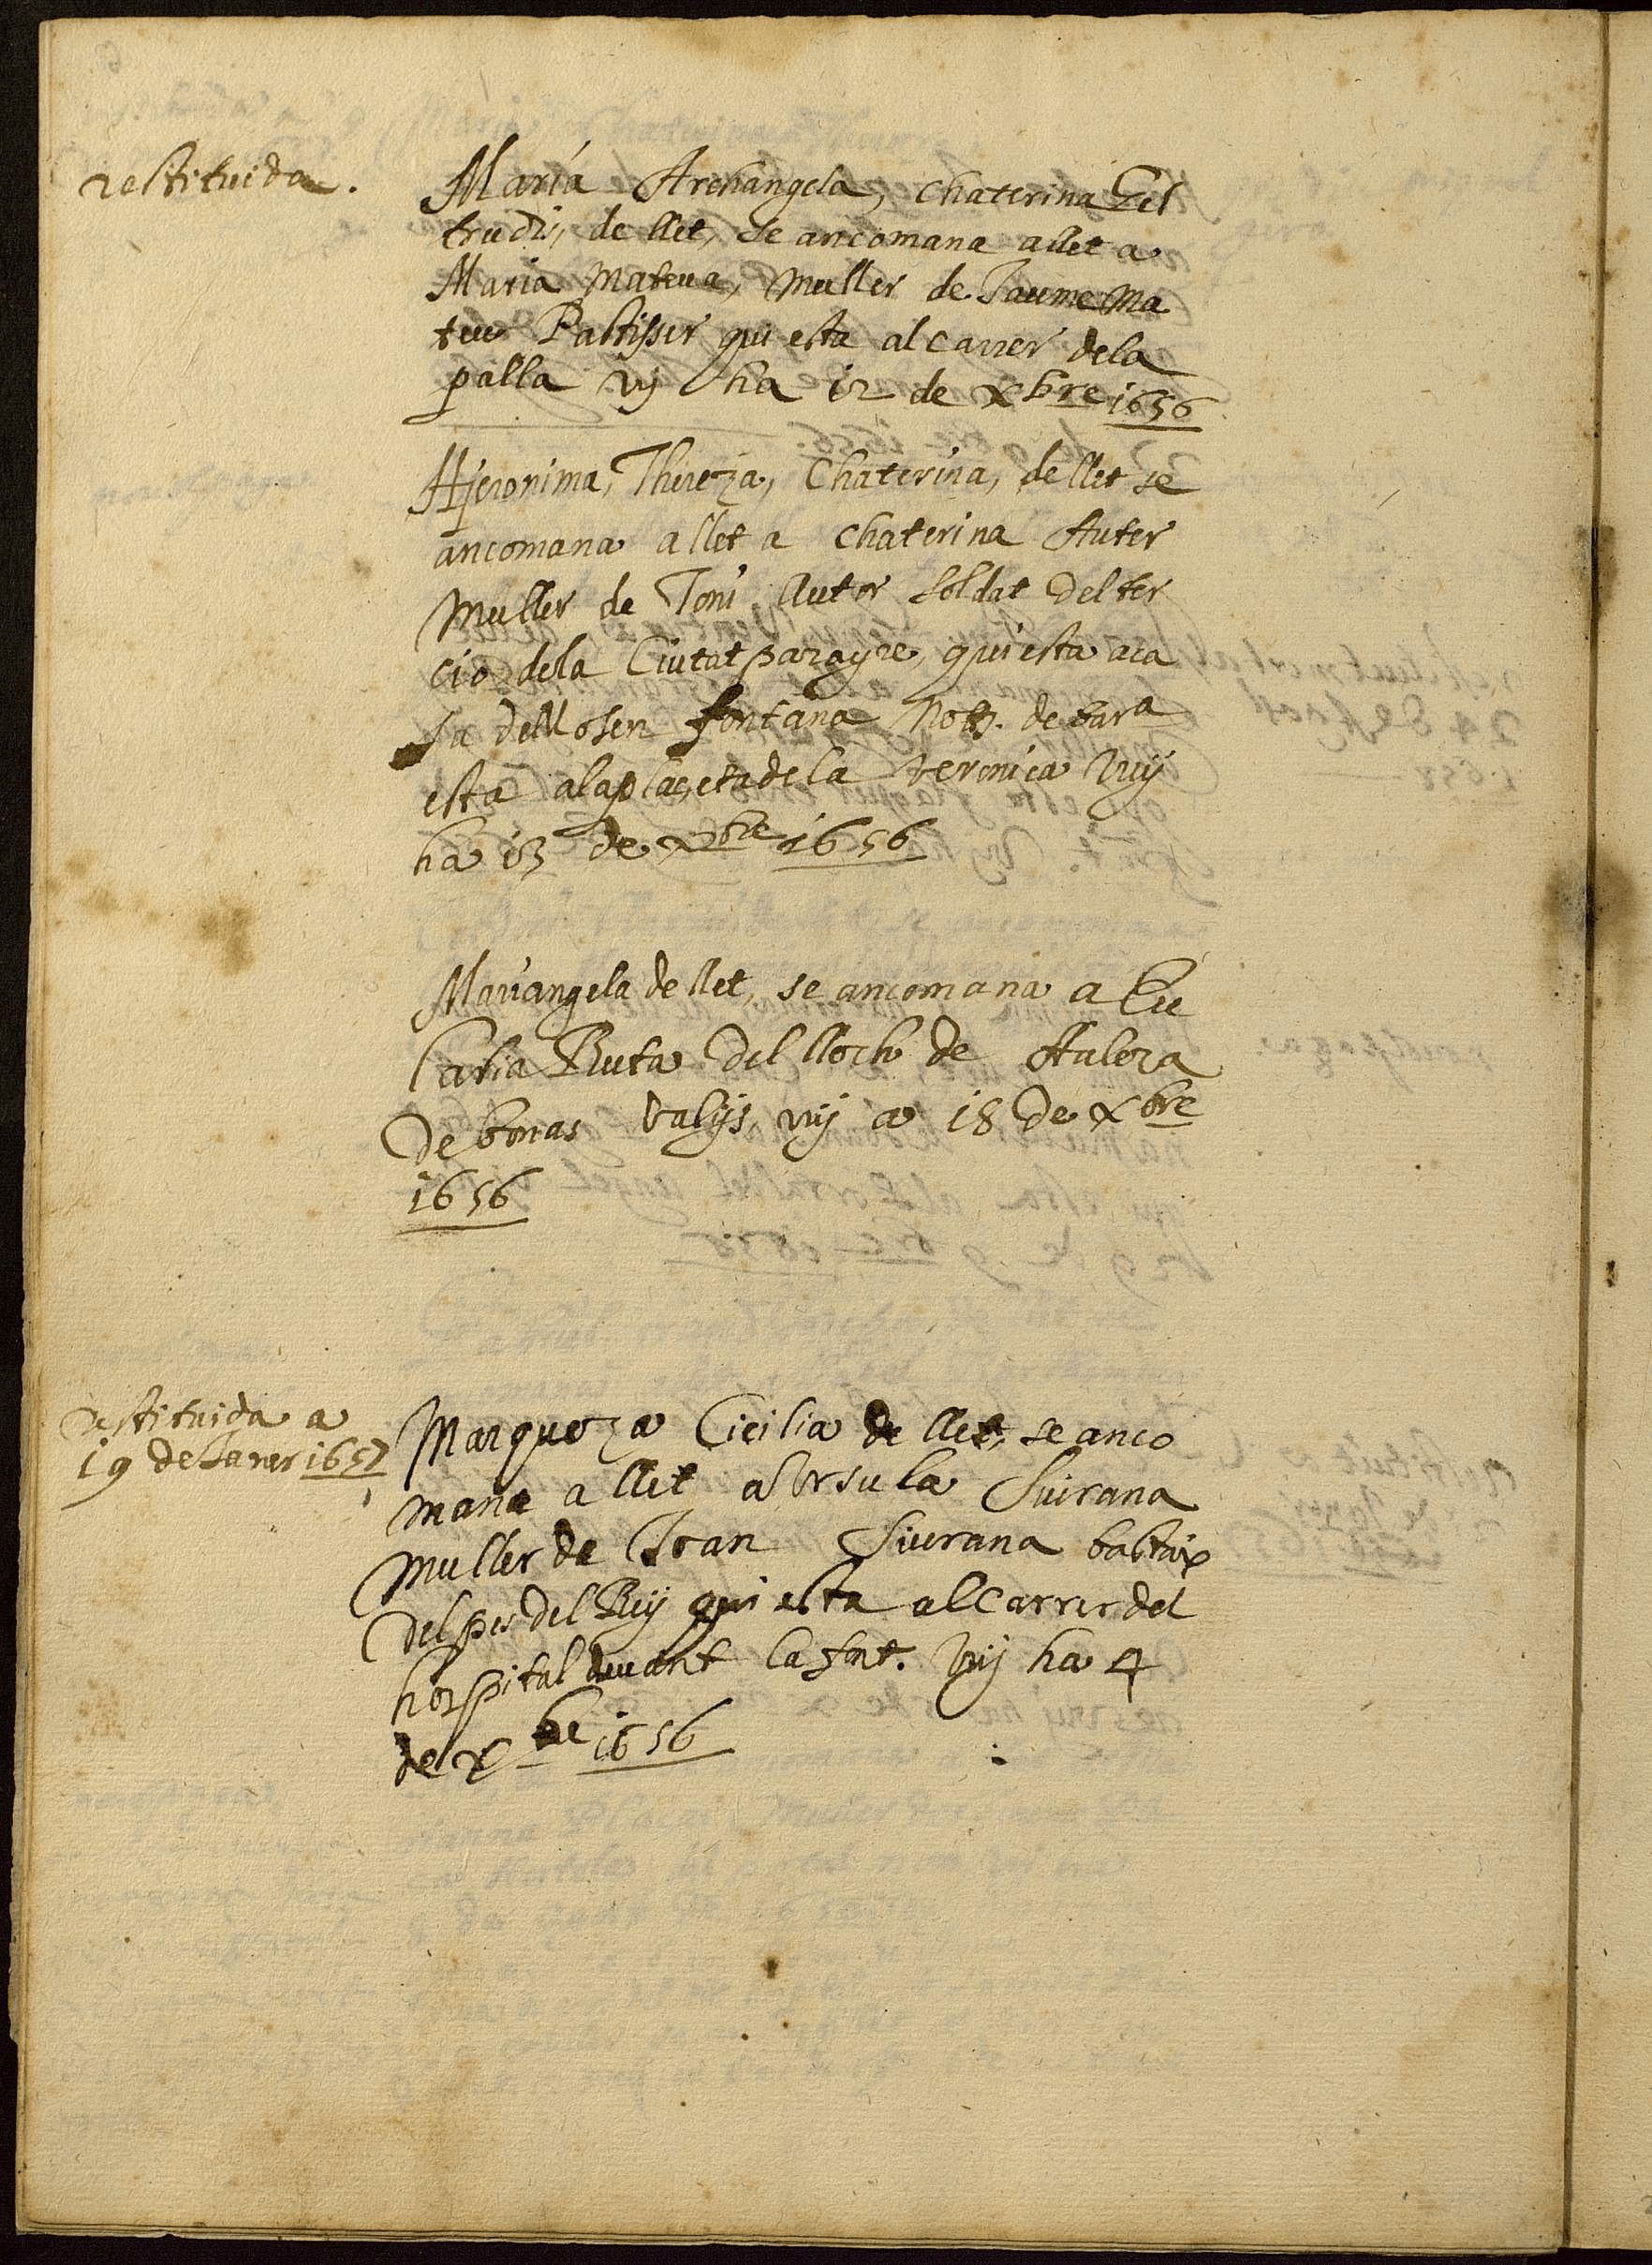 restituida.
María Archangela, Chaterina Gel
trudis, de llet, se ancomana allet a
Maria Mateua, Muller de Jaume Ma
teu Pastisser qui esta al carrer dela
palla vy ha 12 de xbre 1656
Hjeronima, Thereza, Chaterina, de llet se
ancomana allet a Chaterina Auter
Muller de Toni Auter soldat del ter
cio dela Ciutat parayre, qui esta aca
sa del Mosen fontana Noty. de bara
esta ala placeta dela veronica vuy
ha 13 de xbre 1656
Mariangela de llet, se ancomana a Eu
laria Ruta del lloch de Aulera
de bonas valys, vuy a 18 de xbre
1656
restituida a
19 de Janer 1657
Marqueza Cicilia de llet, se anco
mana a llet a Ursula Siurana
muller de Joan Siurana bastaix
del pes del Rey qui esta al Carrer del
hospital devant la font. vuy ha 4
de xbre 1656